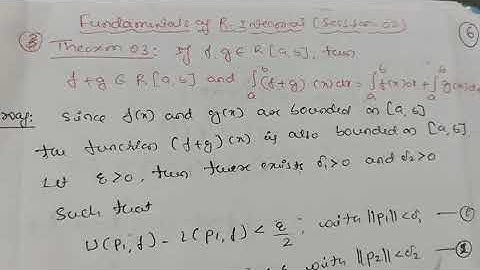 Fundamentals of R-Integral (Session-02)
⑥
③ Theorem 03: If f, g ∈ R[a,b], then
f+g ∈ R[a,b] and ∫_a^b (f+g)(x)dx = ∫_a^b f(x)dx + ∫_a^b g(x)dx
Proof: Since f(x) and g(x) are bounded on [a,b]
the function (f+g)(x) is also bounded on [a,b]
Let ε>0, then there exists δ₁>0 and δ₂>0
such that
U(P₁,f) - L(P₁,f) < ε/2; with ||P₁||<δ₁ —①
with ||P₂||<δ₂ —②